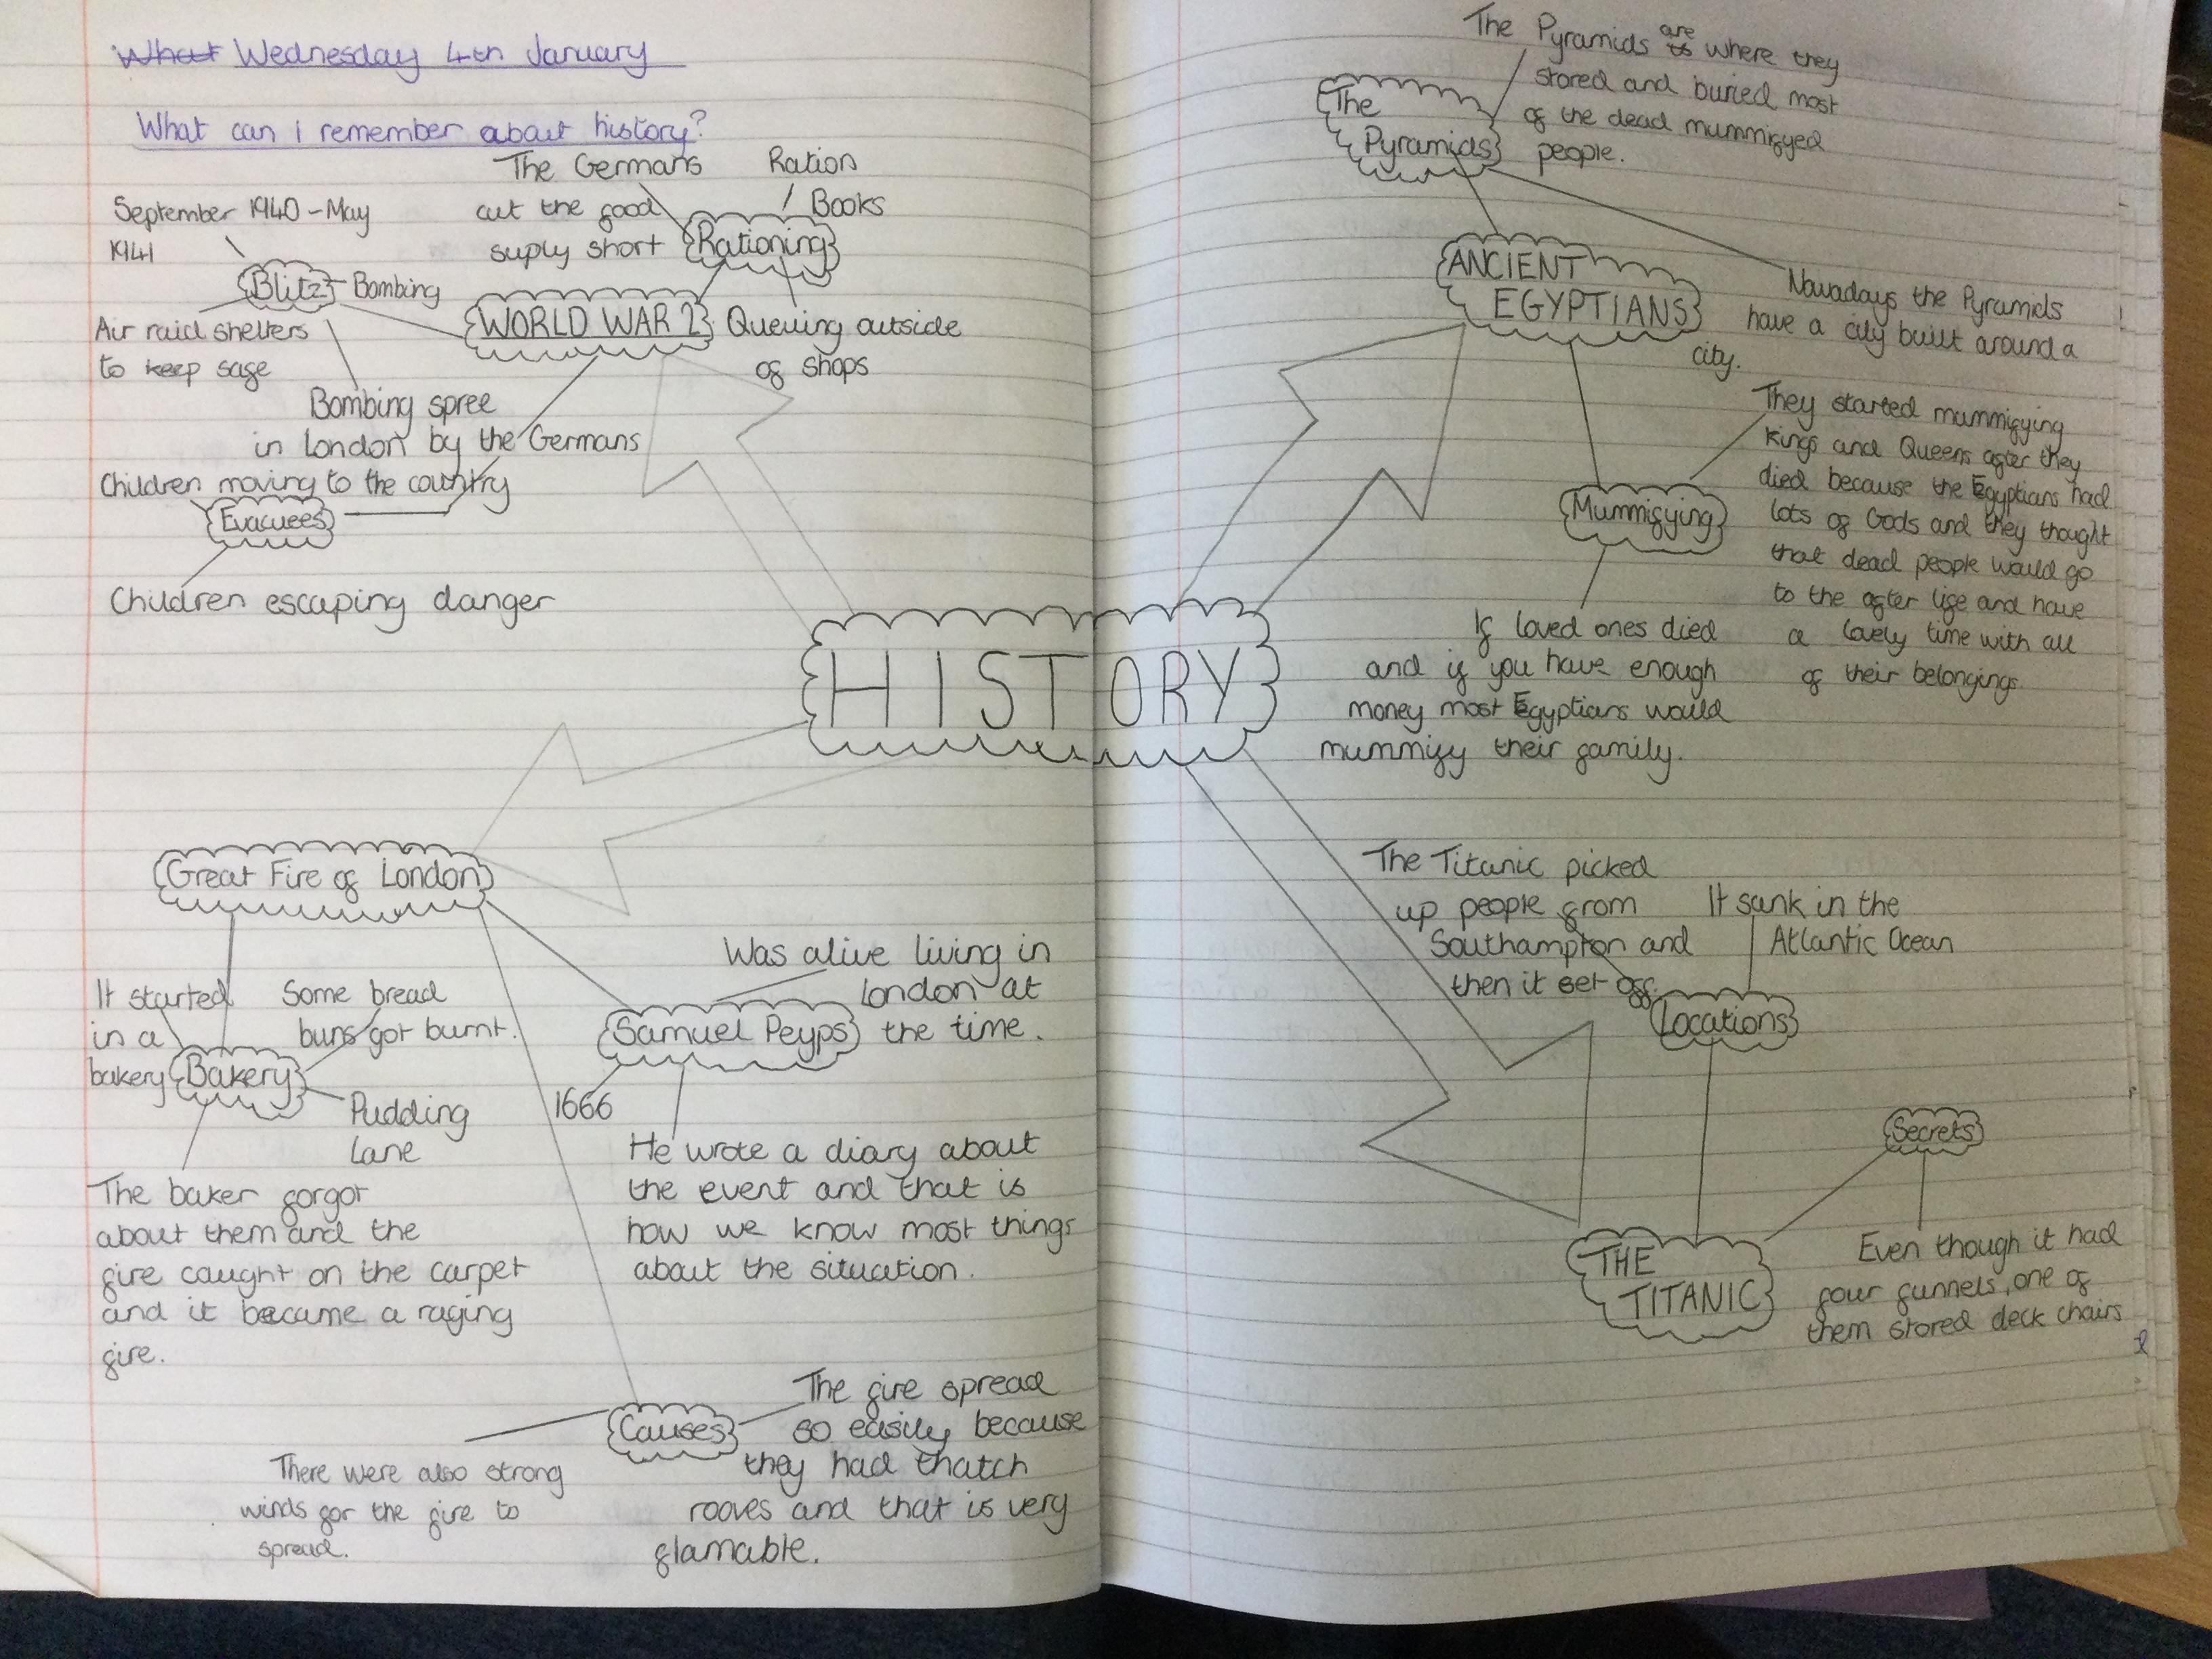 What Wednesday 4th January
What can I remember about history?
September 1940 - May
1941
Blitz
Bombing
Air raid shelters
to keep safe
Bombing spree
in London by the Germans
The Germans
cut the food
suply short
Ration
Books
Rationing
WORLD WAR 2
Queuing outside
of shops
Children moving to the country
Evacuees
Children escaping danger
HISTORY
Great Fire of London
It started
in a
bakery
Some bread
buns got burnt.
Bakery
Pudding
Lane
The baker forgot
about them and the
fire caught on the carpet
and it became a raging
fire.
Was alive living in
London at
the time.
Samuel Peyps
1666
He wrote a diary about
the event and that is
how we know most things
about the situation.
Causes
The fire spread
so easily because
they had thatch
rooves and that is very
flamable.
There were also strong
winds for the fire to
spread.
The Pyramids are where they
stored and buried most
of the dead mummifyed
people.
The
Pyramids
ANCIENT
EGYPTIANS
Nowadays the Pyramids
have a city built around a
city.
Mummifying
They started mummifying
Kings and Queens after they
died because the Egyptians had
lots of Gods and they thought
that dead people would go
to the after life and have
a lovely time with all
of their belongings.
If loved ones died
and if you have enough
money most Egyptians would
mummify their family.
The Titanic picked
up people from
Southampton and
then it set off.
It sank in the
Atlantic Ocean
Locations
Secrets
THE
TITANIC
Even though it had
four funnels, one of
them stored deck chairs